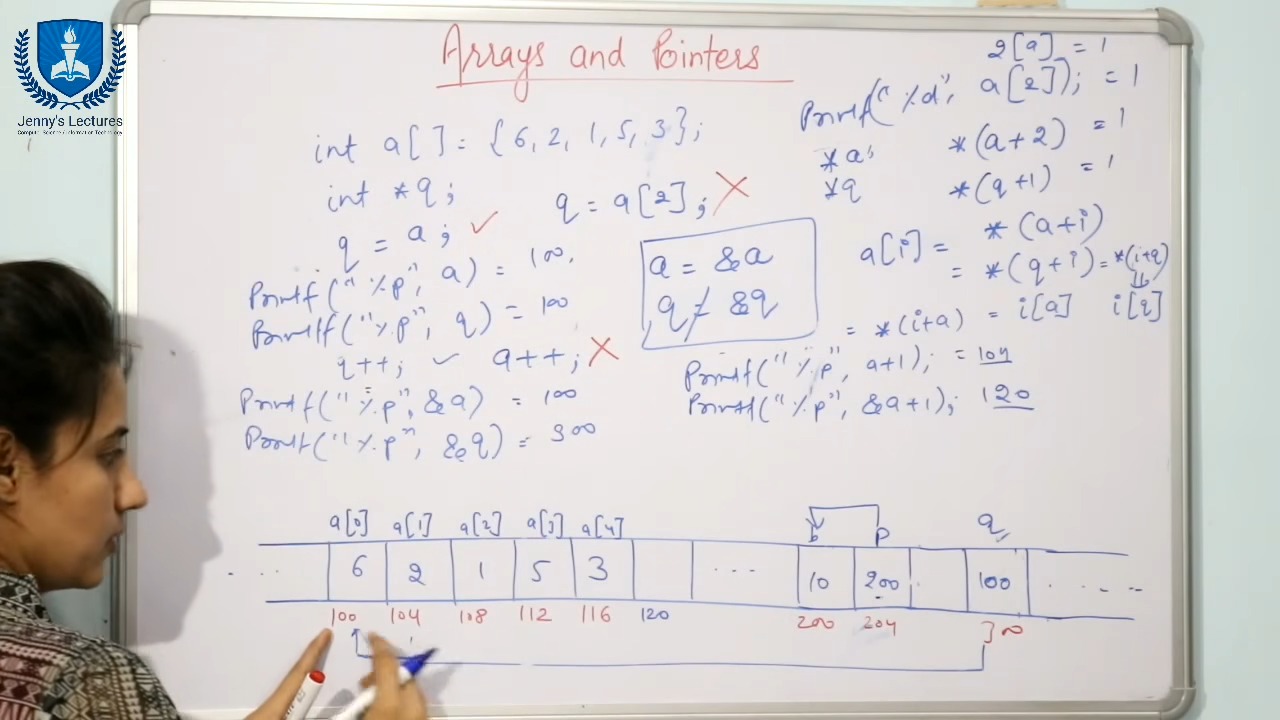 Jenny's Lectures
Computer Science/Information Technology
Arrays and Pointers
int a[] = {6, 2, 1, 5, 3};
int *q;
q = a[2];
q = a; ✓
Printf("%p", a) = 100.
Printf("%p", q) = 100
q++; ✓ a++;
Printf("%p", &a) = 100
Printf("%p", &q) = 300
a = &a
q ≠ &q
2[a] = 1
Printf("%d", a[2]); = 1
*a; *(a+2) = 1
*q *(q+1) = 1
a[i] = *(a+i)
= *(q+i) = *(i+q)
= *(i+a) = i[a] i[q]
Printf("%p", a+1); = 104
Printf("%p", &a+1); 120
a[0] a[1] a[2] a[3] a[4] b p q
6 2 1 5 3 ... 10 200 100
100 104 108 112 116 120 200 204 300